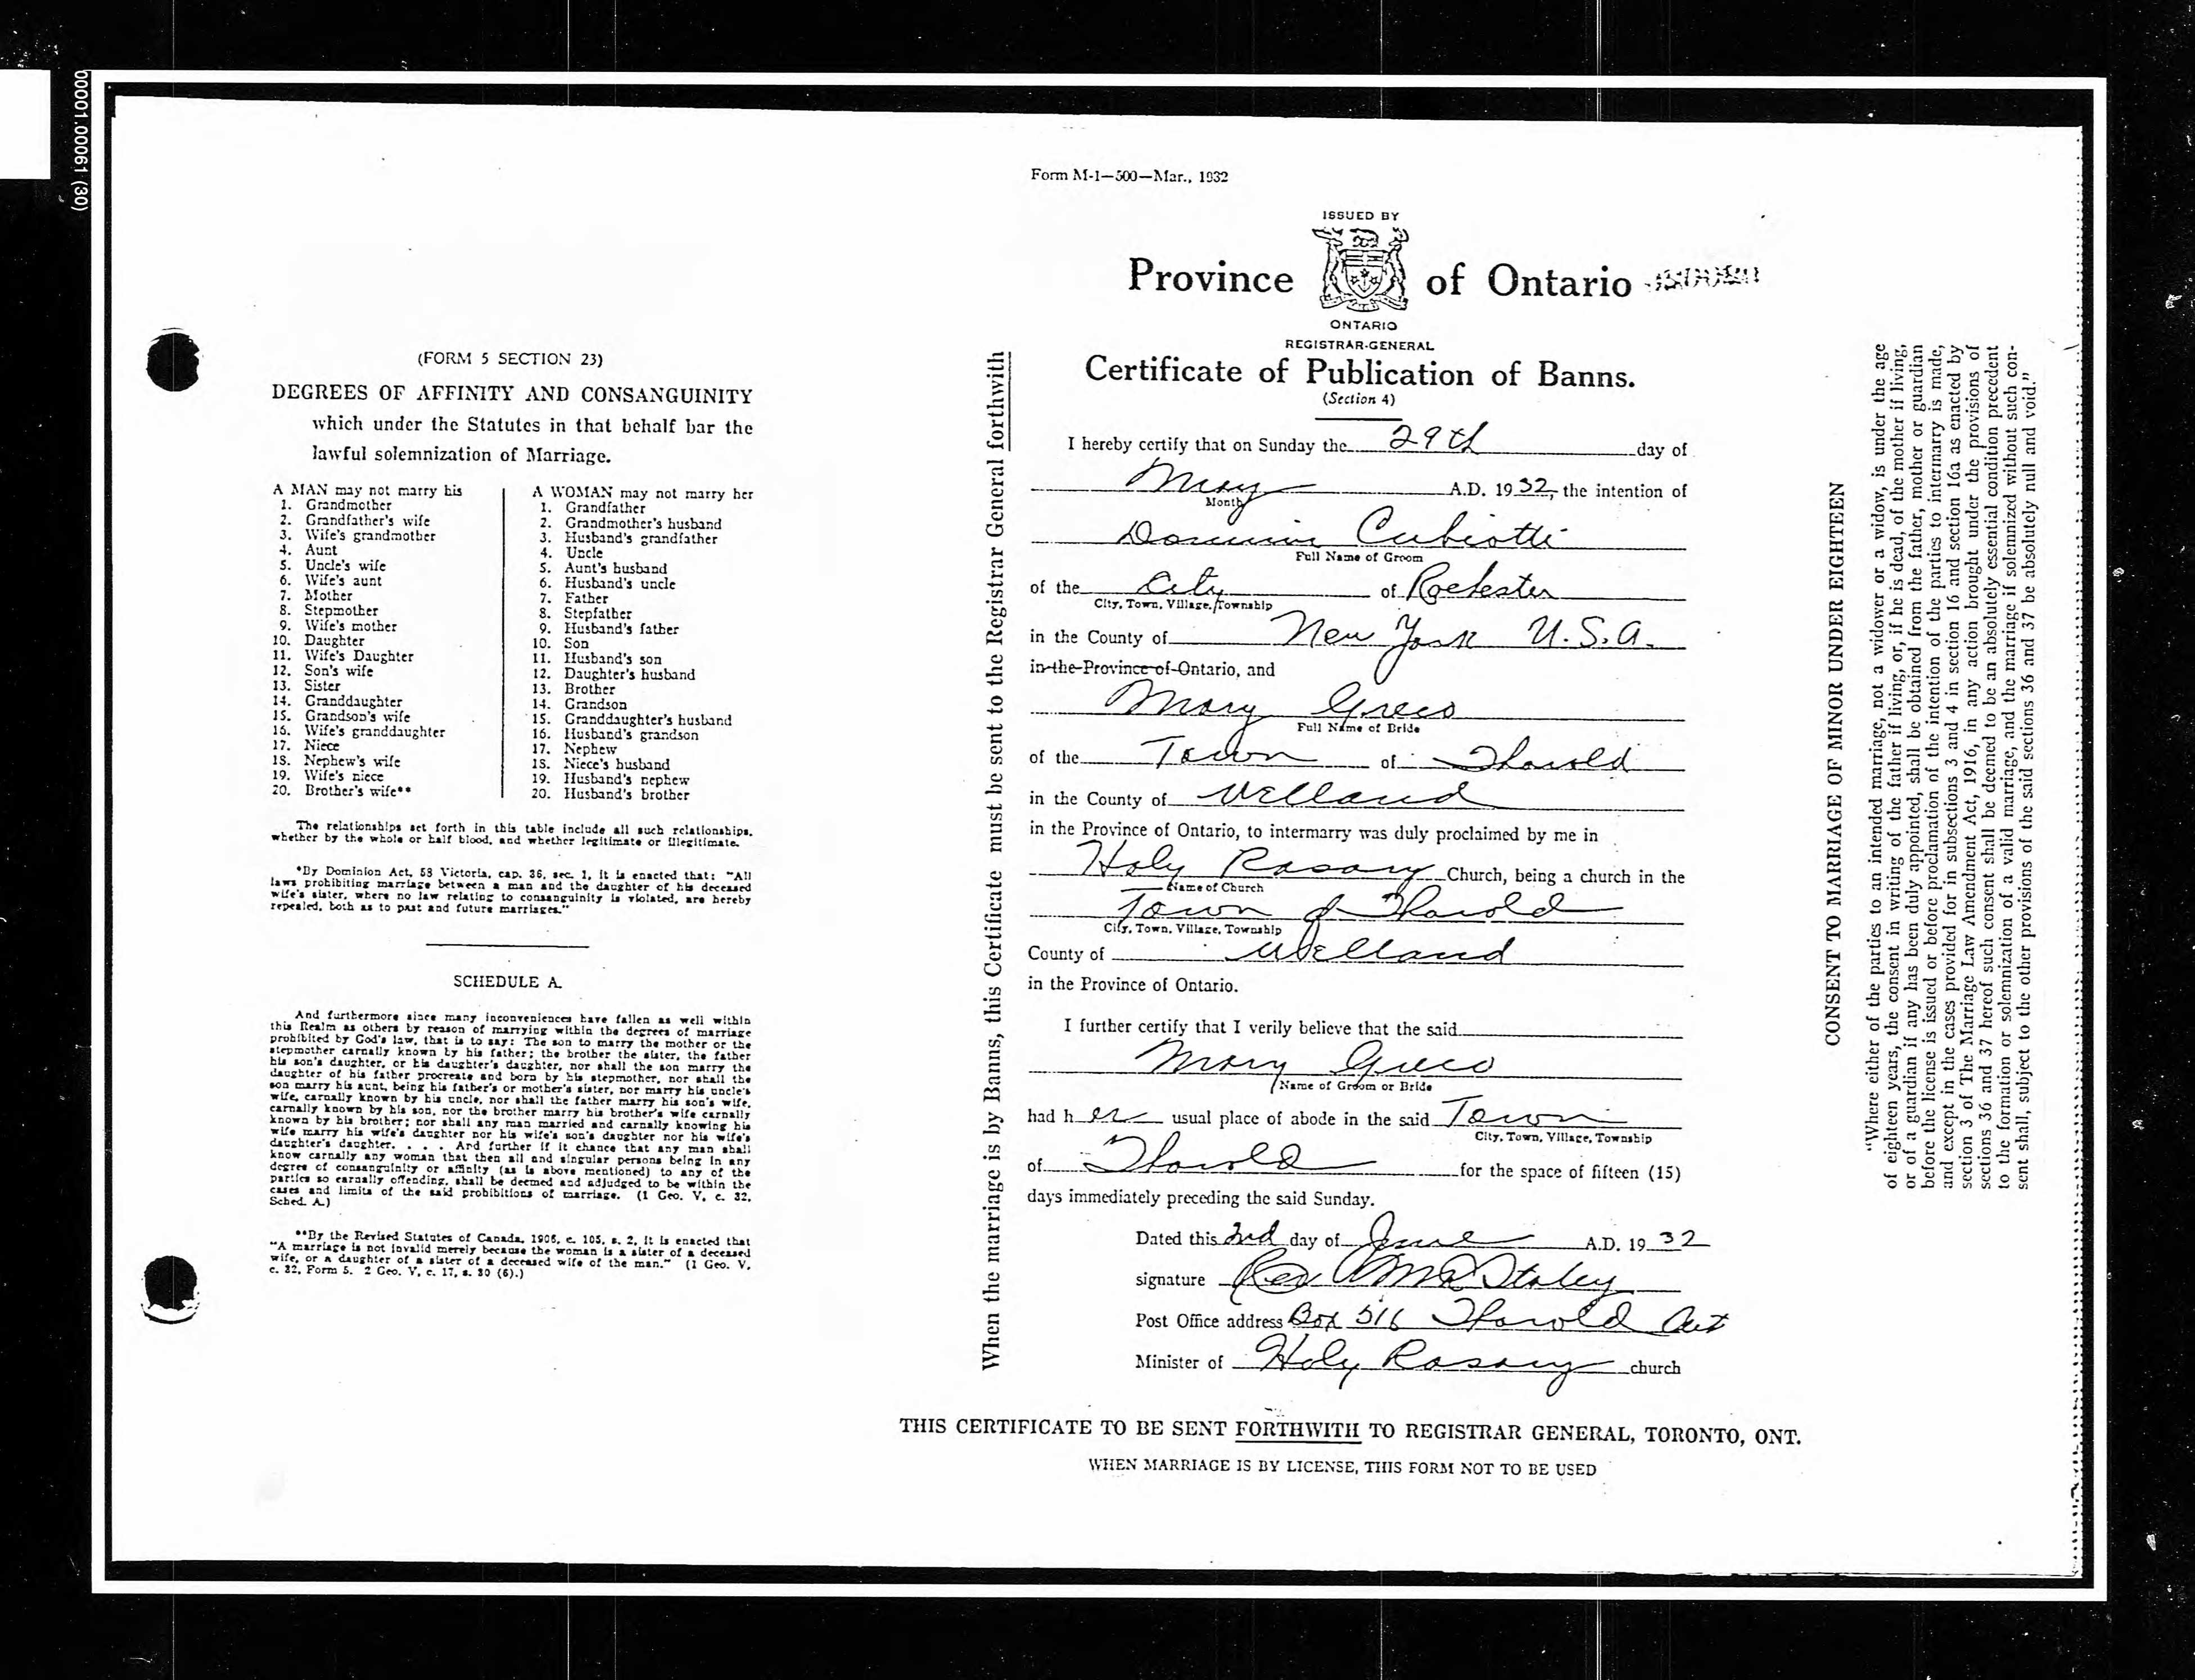 00001.00061 (30)
(FORM 5 SECTION 23)
DEGREES OF AFFINITY AND CONSANGUINITY
which under the Statutes in that behalf bar the
lawful solemnization of Marriage.
A MAN may not marry his
1. Grandmother
2. Grandfather's wife
3. Wife's grandmother
4. Aunt
5. Uncle's wife
6. Wife's aunt
7. Mother
8. Stepmother
9. Wife's mother
10. Daughter
11. Wife's Daughter
12. Son's wife
13. Sister
14. Granddaughter
15. Grandson's wife
16. Wife's granddaughter
17. Niece
18. Nephew's wife
19. Wife's niece
20. Brother's wife**
A WOMAN may not marry her
1. Grandfather
2. Grandmother's husband
3. Husband's grandfather
4. Uncle
5. Aunt's husband
6. Husband's uncle
7. Father
8. Stepfather
9. Husband's father
10. Son
11. Husband's son
12. Daughter's husband
13. Brother
14. Grandson
15. Granddaughter's husband
16. Husband's grandson
17. Nephew
18. Niece's husband
19. Husband's nephew
20. Husband's brother
The relationships set forth in this table include all such relationships,
whether by the whole or half blood, and whether legitimate or illegitimate.
*By Dominion Act, 53 Victoria, cap. 36, sec. 1, it is enacted that: "All
laws prohibiting marriage between a man and the daughter of his deceased
wife's sister, where no law relating to consanguinity is violated, are hereby
repealed, both as to past and future marriages."
SCHEDULE A.
And furthermore since many inconveniences have fallen as well within
this Realm as others by reason of marrying within the degrees of marriage
prohibited by God's law, that is to say: The son to marry the mother or the
stepmother carnally known by his father; the brother the sister, the father
his son's daughter, or his daughter's daughter, nor shall the son marry the
daughter of his father procreate and born by his stepmother, nor shall the
son marry his aunt, being his father's or mother's sister, nor marry his uncle's
wife, carnally known by his uncle, nor shall the father marry his son's wife,
carnally known by his son, nor the brother marry his brother's wife carnally
known by his brother; nor shall any man married and carnally knowing his
wife marry his wife's daughter nor his wife's son's daughter nor his wife's
daughter's daughter. . . . And further if it chance that any man shall
know carnally any woman that then all and singular persons being in any
degree of consanguinity or affinity (as is above mentioned) to any of the
parties so carnally offending, shall be deemed and adjudged to be within the
cases and limits of the said prohibitions of marriage. (1 Geo. V, c. 32,
Sched. A.)
**By the Revised Statutes of Canada, 1906, c. 105, s. 2, it is enacted that
"A marriage is not invalid merely because the woman is a sister of a deceased
wife, or a daughter of a sister of a deceased wife of the man." (1 Geo. V,
c. 32, Form 5. 2 Geo. V, c. 17, s. 30 (6).)
When the marriage is by Banns, this Certificate must be sent to the Registrar General forthwith
Form M-1—500—Mar., 1932
ISSUED BY
Province of Ontario
ONTARIO
REGISTRAR-GENERAL
Certificate of Publication of Banns.
(Section 4)
I hereby certify that on Sunday the 29th day of
May A.D. 1932, the intention of
Month
Dominic Cubiotti
Full Name of Groom
of the City of Rochester
City, Town, Village, Township
in the County of New York U.S.A.
in the Province of Ontario, and
Mary Greco
Full Name of Bride
of the Town of Thorold
in the County of Welland
in the Province of Ontario, to intermarry was duly proclaimed by me in
Holy Rosary Church, being a church in the
Name of Church
Town of Thorold
City, Town, Village, Township
County of Welland
in the Province of Ontario.
I further certify that I verily believe that the said
Mary Greco
Name of Groom or Bride
had her usual place of abode in the said Town
City, Town, Village, Township
of Thorold for the space of fifteen (15)
days immediately preceding the said Sunday.
Dated this 2nd day of June A.D. 1932
signature Rev Staley
Post Office address Box 516 Thorold Ont
Minister of Holy Rosary church
THIS CERTIFICATE TO BE SENT FORTHWITH TO REGISTRAR GENERAL, TORONTO, ONT.
WHEN MARRIAGE IS BY LICENSE, THIS FORM NOT TO BE USED
CONSENT TO MARRIAGE OF MINOR UNDER EIGHTEEN
"Where either of the parties to an intended marriage, not a widower or a widow, is under the age
of eighteen years, the consent in writing of the father if living, or, if he is dead, of the mother if living,
or of a guardian if any has been duly appointed, shall be obtained from the father, mother or guardian
before the license is issued or before proclamation of the intention of the parties to intermarry is made,
and except in the cases provided for in subsections 3 and 4 in section 16 and section 16a as enacted by
section 3 of The Marriage Law Amendment Act, 1916, in any action brought under the provisions of
sections 36 and 37 hereof such consent shall be deemed to be an absolutely essential condition precedent
to the formation or solemnization of a valid marriage, and the marriage if solemnized without such con-
sent shall, subject to the other provisions of the said sections 36 and 37 be absolutely null and void."